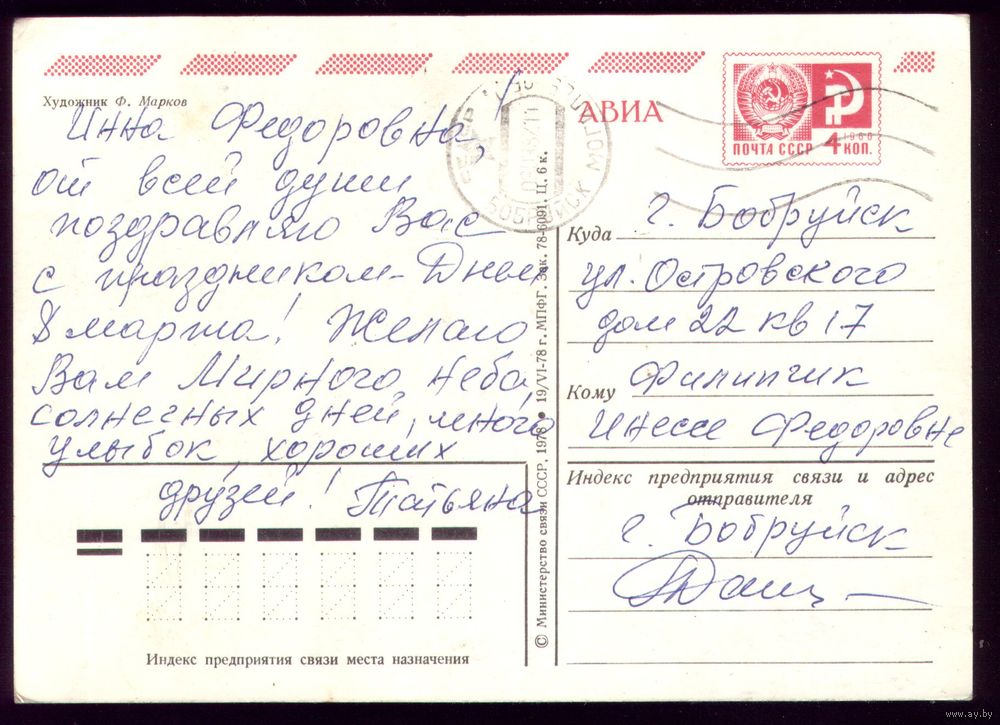 Художник Ф. Марков
Инна Федоровна,
от всей души
поздравляю Вас
с праздником - Днем
8 марта! Желаю
Вам Мирного неба,
солнечных дней, много
улыбок, хороших
друзей! Татьяна
Индекс предприятия связи места назначения
© Министерство связи СССР, 1978 ● 19/VI-78 г. МПФГ. Зак. 78-6091. Ц. 6 к.
БОБРУЙСК
АВИА
ПОЧТА СССР
1966
4 КОП.
Куда г. Бобруйск
ул. Островского
дом 22 кв 17
Кому Филипчик
Инессе Федоровне
Индекс предприятия связи и адрес
отправителя
г. Бобруйск
www.ay.by